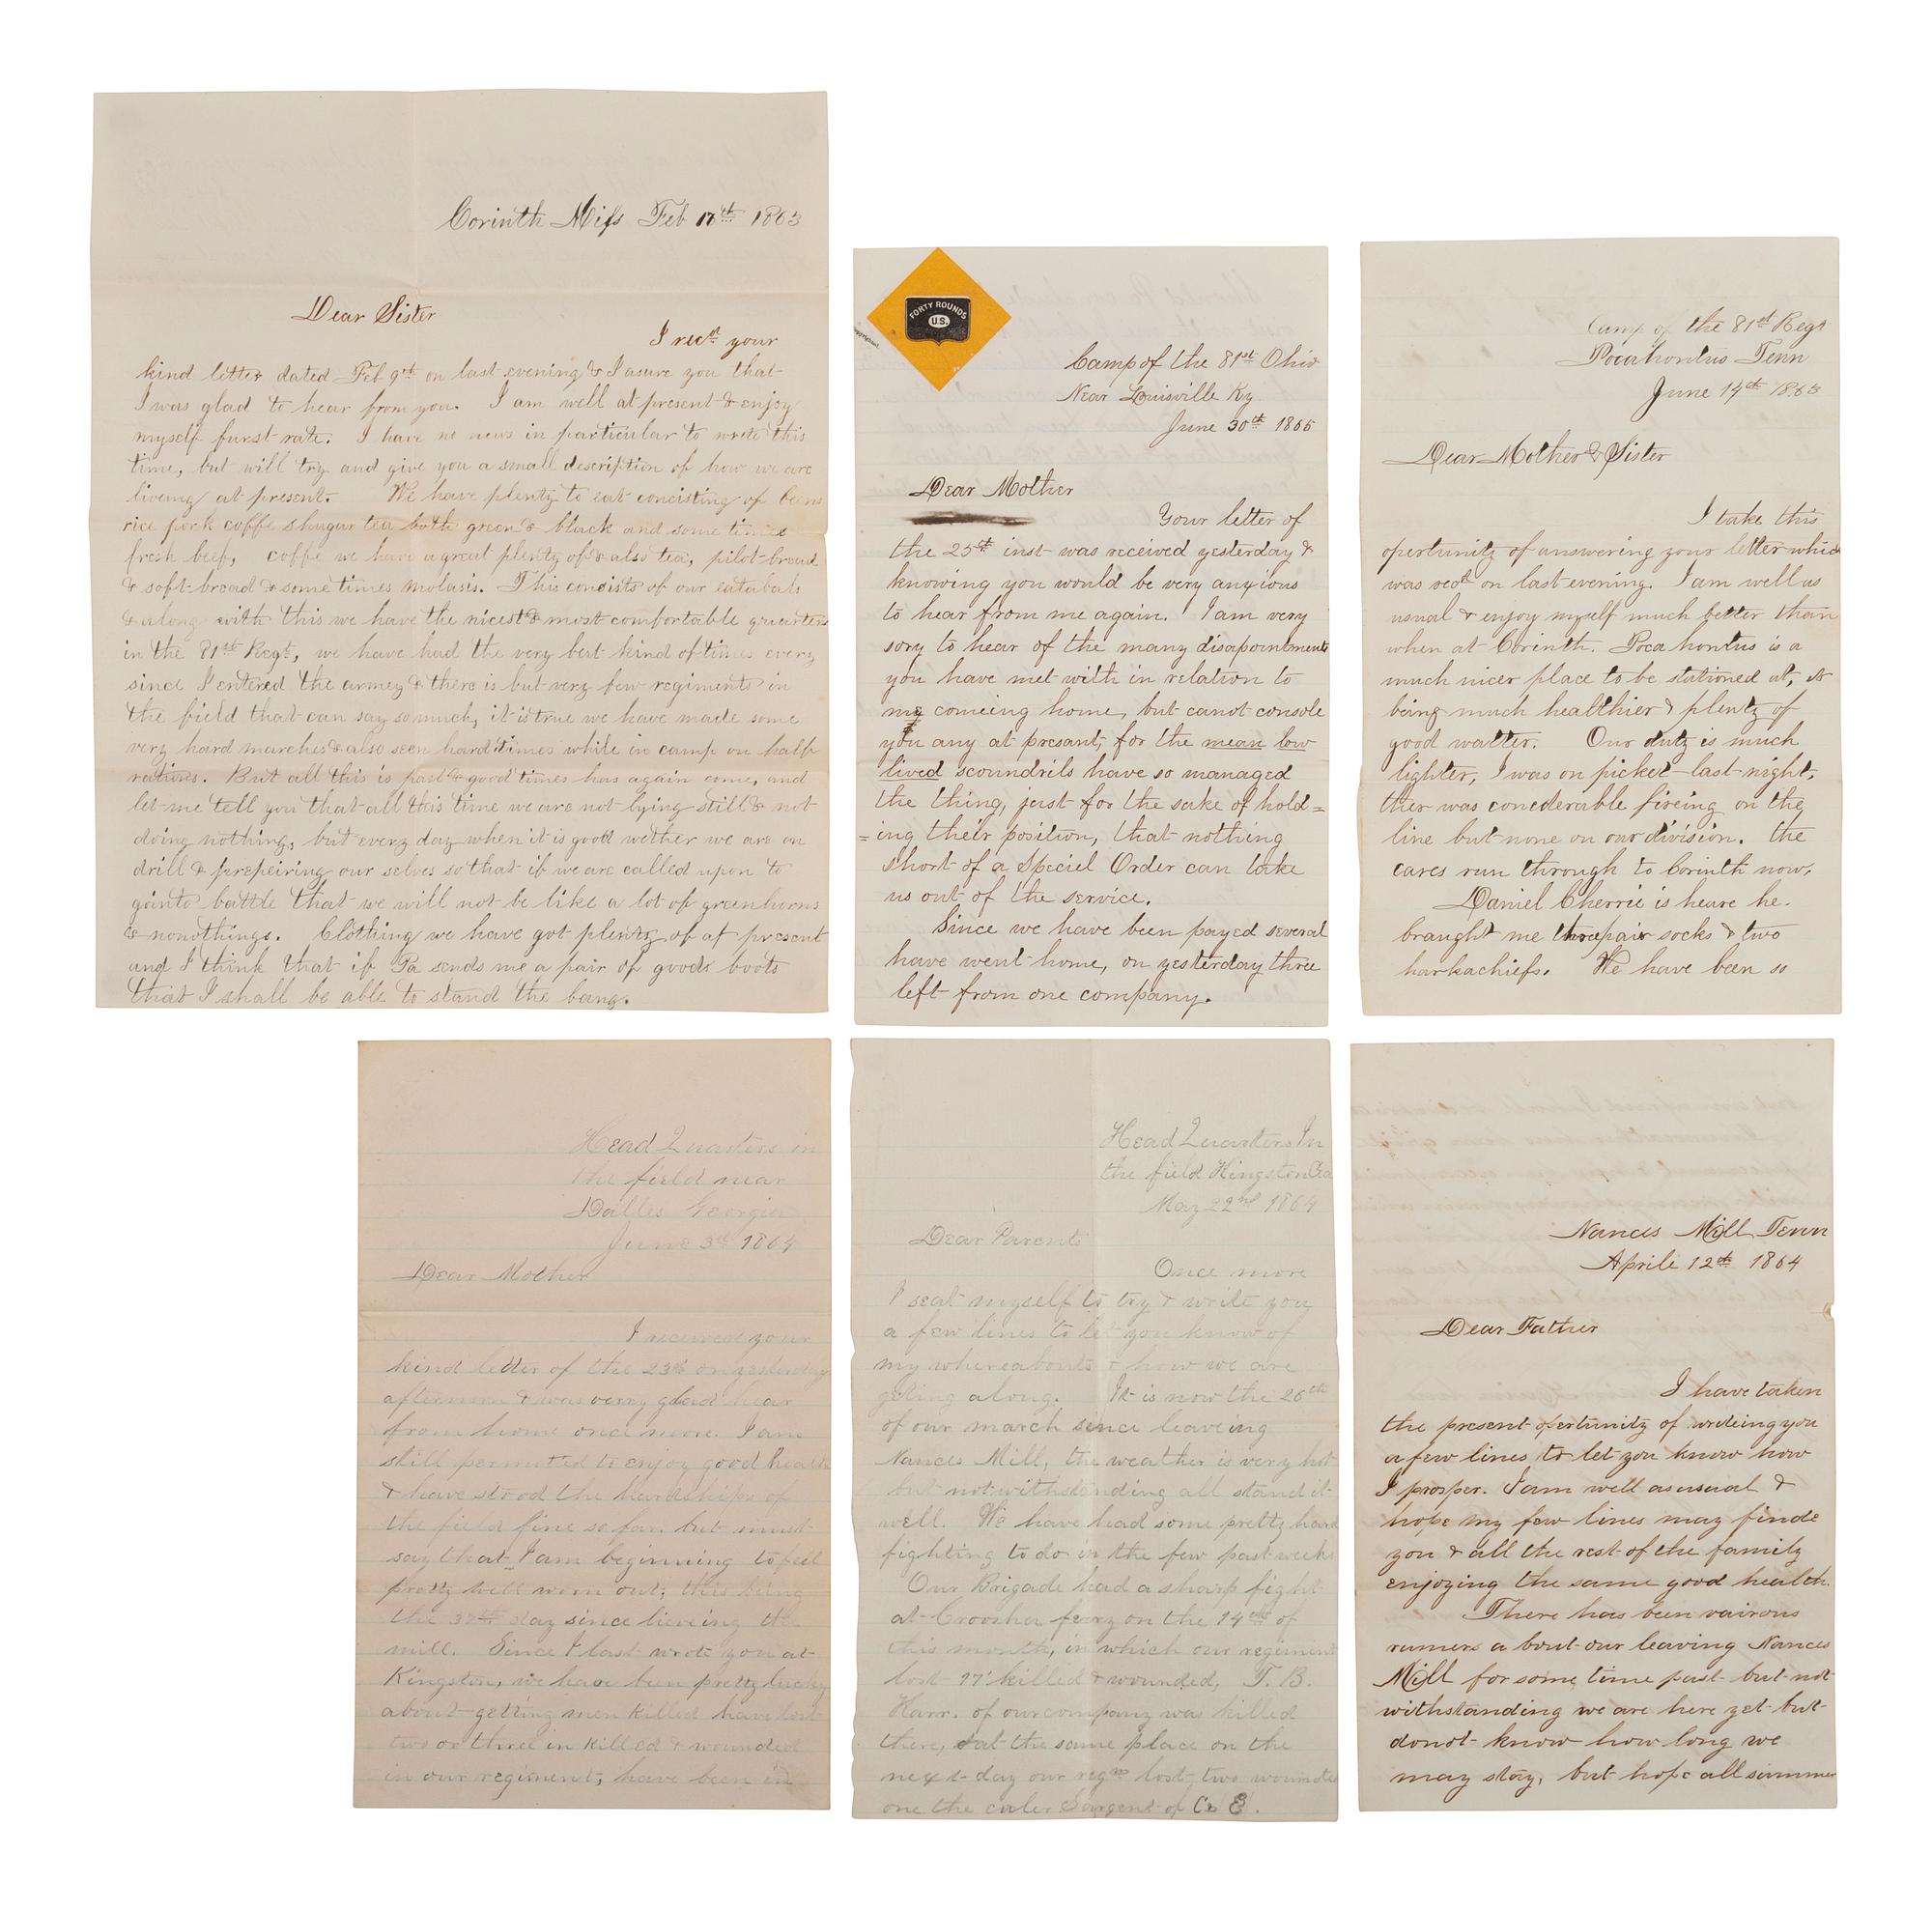 Corinth Miss Feb 17th 1863
Dear Sister
I recd your
kind letter dated Feb 9th on last evening & I asure you that
I was glad to hear from you. I am well at present & enjoy
myself furst rate. I have no news in particular to write this
time, but will try and give you a small description of how we are
liveing at present. We have plenty to eat concisting of beens
rice pork coffe shugar tea both green & black and some times
fresh beef, coffe we have a great plenty of & also tea, pilot-bread
& soft-bread & some times molasis. This concists of our eatabals
& along with this we have the nicest & most comfortable quarters
in the 81st Regt, we have had the very best kind of times every
since I entered the armey & there is but very few regiments in
the field that can say so much, it is true we have made some
very hard marches & also seen hard times while in camp on half
rations. But all this is past & good times has again come, and
let me tell you that all this time we are not lying still & not
doing nothing, but every day when it is good wether we are on
drill & prepeiring our selves so that if we are called upon to
go into battle that we will not be like a lot of greenhorns
& nonothings. Clothing we have got plenty of at present
and I think that if Pa sends me a pair of goods boots
that I shall be able to stand the bang.
FORTY ROUNDS
U.S.
Camp of the 81st Ohio
Near Louisville Ky
June 30th 1865
Dear Mother
Your letter of
the 25th inst was received yesterday &
knowing you would be very anxious
to hear from me again. I am very
sory to hear of the many disapointments
you have met with in relation to
my comeing home, but canot console
you any at presant, for the mean low
lived scoundrils have so managed
the thing, just for the sake of hold=
=ing their position, that nothing
short of a Speciel Order can take
us out of the service.
Since we have been payed several
have went home, on yesterday three
left from one company.
Camp of the 81st Regt
Pocahontus Tenn
June 14th 1863
Dear Mother & Sister
I take this
opertunity of answering your letter which
was recd on last evening. I am well as
usual & enjoy myself much better than
when at Corinth. Pocahontus is a
much nicer place to be stationed at, it
being much healthier & plenty of
good watter. Our duty is much
lighter, I was on picket last night,
ther was conciderable fireing on the
line but none on our division. the
cares run through to Corinth now.
Daniel Cherrie is heare he
braught me three pair socks & two
harkachiefs. We have been so
Head Quarters in
the field near
Dalles Georgia
June 3d 1864
Dear Mother
I received your
kind letter of the 23d on yesterday
afternoon & was verry glad hear
from home once more. I am
still permitted to enjoy good health
& have stood the hardships of
the field fine so far, but must
say that I am beginning to feel
pretty well worn out; this being
the day since lieveing the
mill. Since I last wrote you at
Kingston, we have been pretty lucky
about getting men killed have lost
two or three in killed & wounded
in our regiment, have been in
Head Quarters In
the field Kingston Ga
May 22nd 1864
Dear Parents
Once more
I seat myself to try & write you
a few lines to let you know of
my whereabouts & how we are
geting along. It is now the 26th
of our march since leaveing
Nances Mill, the weather is very hot
but notwithstanding all stand it
well. We have had some pretty hard
fighting to do in the few past weeks
Our Brigade had a sharp fight
at Croosher ferry on the 14th of
this month, in which our regiment
lost 17 killed & wounded, T. B.
Harr. of our company was killed
there, & at the same place on the
next day our regt lost two wounded
one the culer Sargent of Co E.
Nances Mill Tenn
Aprile 12th 1864
Dear Father
I have taken
the present opertunity of writeing you
a few lines to let you know how
I prosper. I am well as usual &
hope my few lines may finde
you & all the rest of the family
enjoying the same good health.
There has been vairous
rumers about our leaving Nances
Mill for some time past but not
withstanding we are here yet but
donot know how long we
may stay, but hope all summer